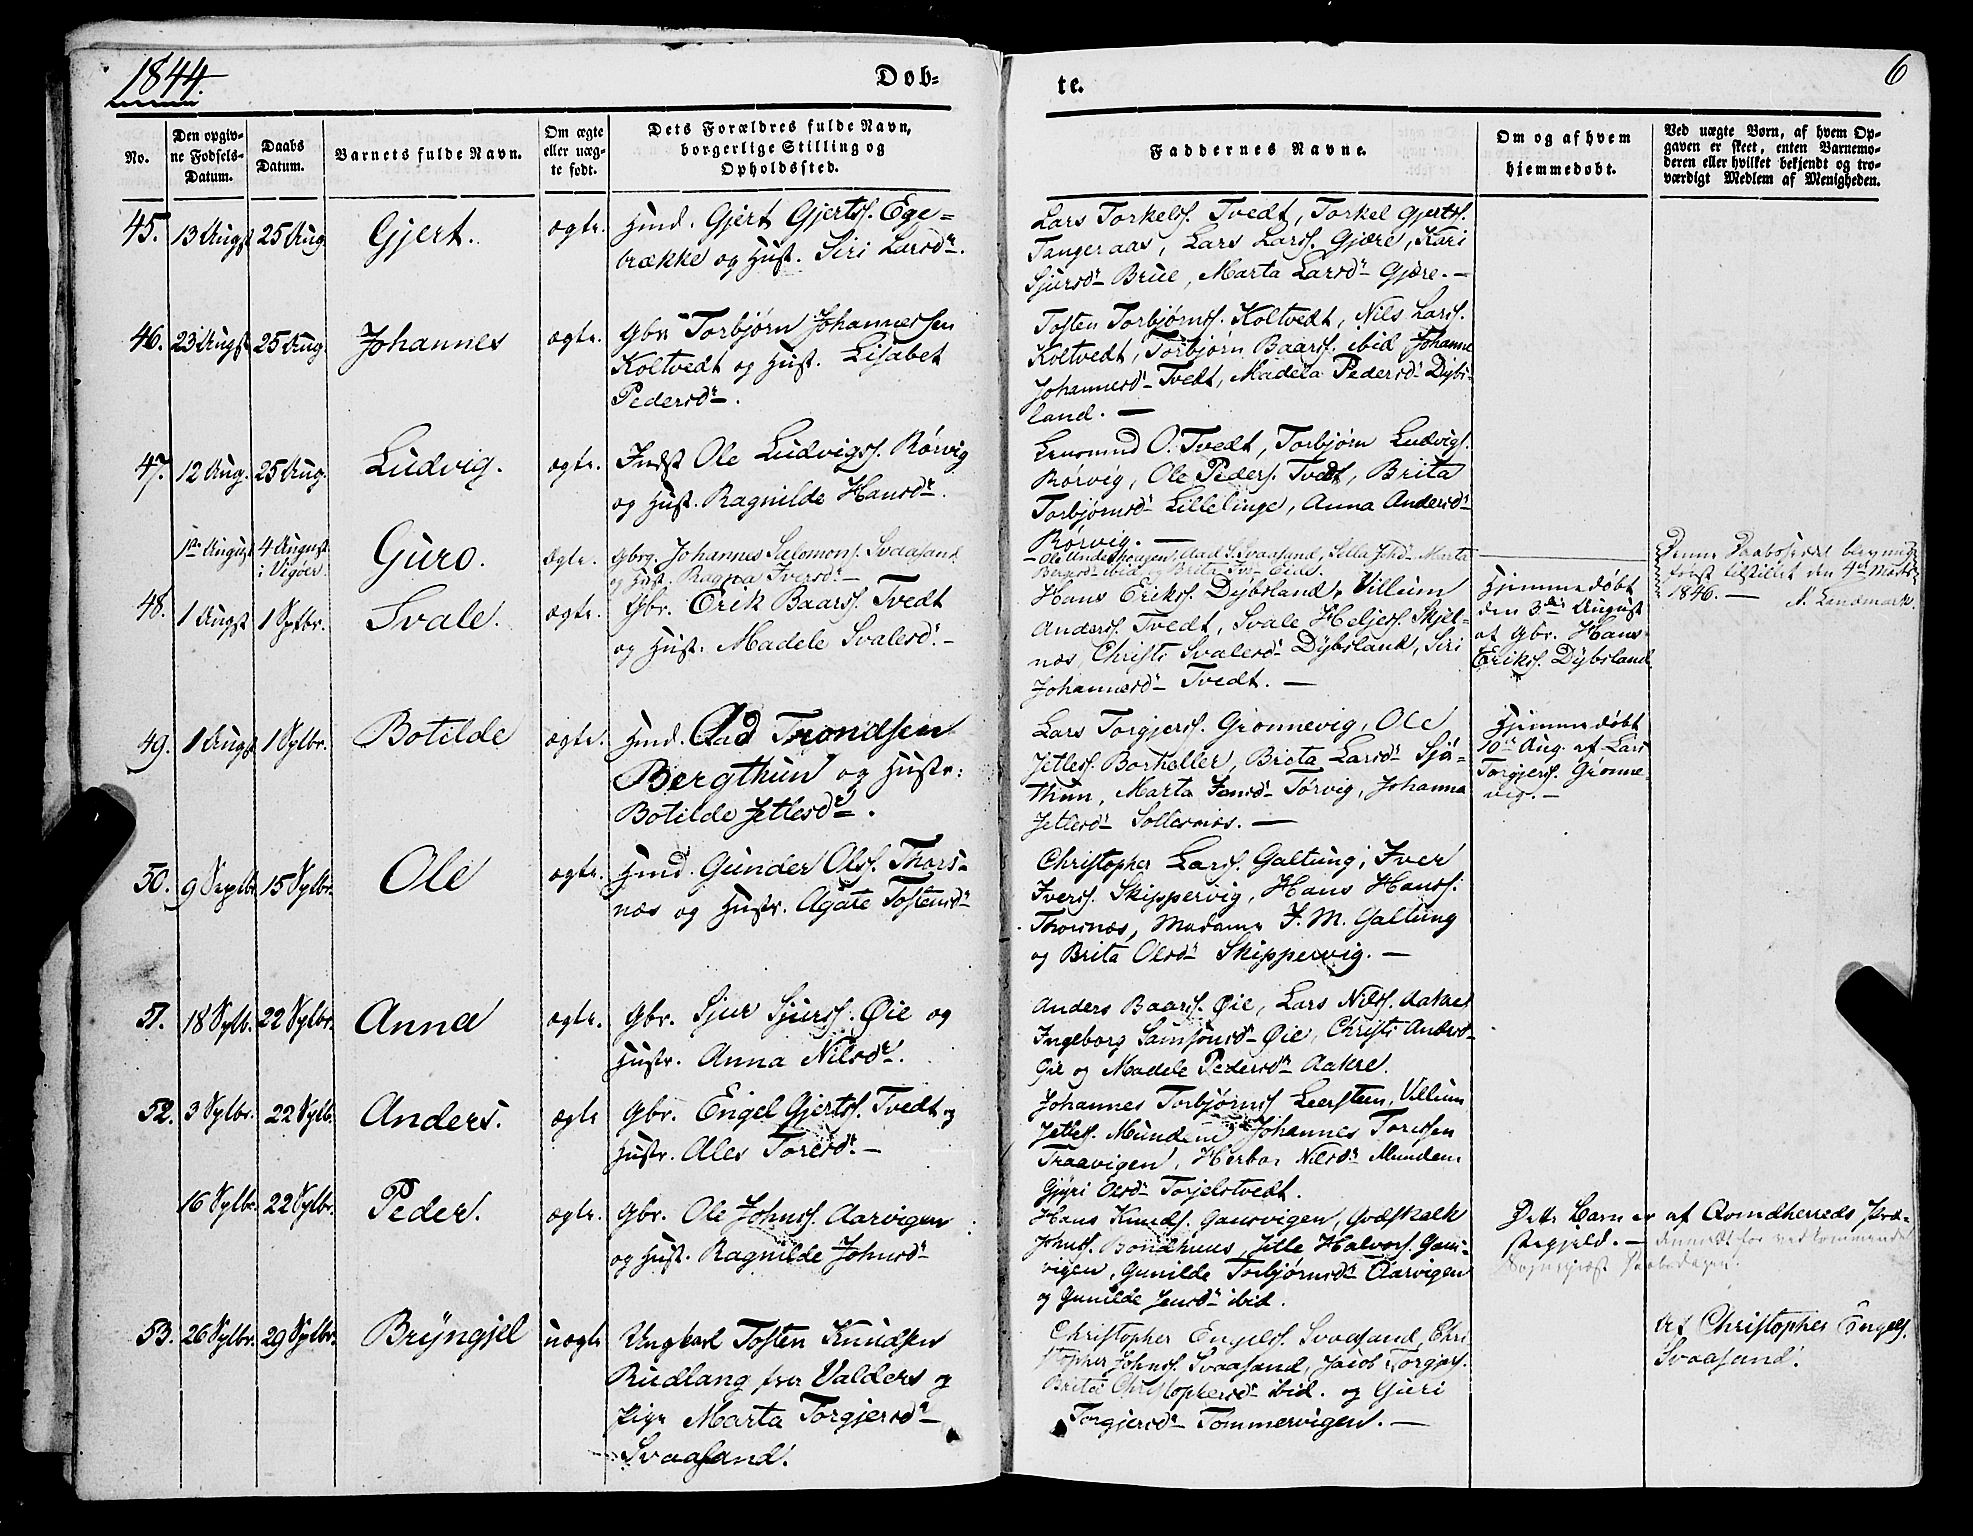 1844.
Døb-
te.
6
No.
Den opgiv-
ne Fødsels-
Datum.
Daabs
Datum.
Barnets fulde Navn.
Om ægte
eller uæg-
te født.
Dets Forældres fulde Navn,
borgerlige Stilling og
Opholdssted.
Faddernes Navne.
Om og af hvem
hjemmedøbt.
Ved uægte Børn, af hvem Op-
gaven er skeet, enten Barnemo-
deren eller hvilket bekjendt og tro-
værdigt Medlem af Menigheden.
45. 13 Augst 25 Aug. Gjert. ægte.
Hmd. Gjert Gjertss. Ege-
brække og Hust. Siri Larsdr.
Lars Torkelss. Tvedt, Torkel Gjertss.
Tangeraas, Lars Larss. Gjøre, Kari
Sjursdr Brue, Marta Larsdr Gjøre. —
46. 23 Augst 25 Aug. Johannes ægte.
Gbr Torbjørn Johannessen
Koltvedt og Hust. Lisabet
Pedersdr.
Tosten Torbjørnss. Koltvedt, Nils Larss.
Koltvedt, Torbjørn Baarss. ibid Johanne
Johannesdr Tvedt, Madela Pedersdr Dybs-
land. —
47. 12 Aug. 25 Aug. Ludvig. ægte.
Indst Ole Ludvigss. Rørvig
og Hust. Ragnilde Hansdr.
Lensmnd O. Tvedt, Torbjørn Ludvigs.
Rørvig, Ole Peders. Tvedt, Brita
Torbjørnsdr Lillelinge, Anna Andersdr
Rørvig. —
1ste August 4 August
i Vigøer. Guro. Ægte.
Gbrg. Johannes Salomons. Svaasand
og Hust. Ragna Iversdr —
Svaasand,
Marta
ibid
Brita
Denne Daabsseddel blev mig
først tilstillet den 4de Marts
1846. — N. Landmark.
48. 1 Augst 1 Sptbr. Svale. ægte.
Gbr. Erik Baarss. Tvedt
og Hust. Madele Svalesd. —
Hans Erikss. Dybsland, Villum
Anderss. Tvedt, Svale Heljess. Skjel-
næs, Christi Svalesdr Dybsland, Siri
Johannesdr Tvedt. —
Hjemmedøbt
den 3die August
af Gbr. Hans
Erikss. Dybsland
49. 1 Augst 1 Sptbr. Botilde ægte.
Hmd. Aad Trondsen
Bergthun og Hustr:
Botilde Jetlesdr.
Lars Torgjerss. Grønnevig, Ole
Jetless. Borhaller, Brita Larsdr Sjü-
thun, Marta Jensdr Tørvig, Johanna
Jetlesdr Soltesnæs. —
Hjemmedøbt
10de Aug. af Lars
Torgjerss. Grønne-
vig. —
50. 9 Septbr. 15 Sptbr. Ole ægte.
Hmd. Gunder Olss. Thors-
næs og Hustr. Agate Tostensdr
Christopher Larss. Galtung, Iver
Iverss. Skippervig, Hans Hanss.
Thorsnæs, Madame J. M. Galtung
og Brita Olsdr Skippervig. —
51. 18 Sptb. 22 Sptbr. Anna ægte.
Gbr. Sjur Sjurss. Øie og
Hustr. Anna Nilsdr.
Anders Baarss. Øie, Lars Nilss. Aakre
Ingeborg Samsonsdr Øie, Christi Andersd-
Øie og Madele Pedersdr Aakre.
52. 3 Sptbr. 22 Sptb. Anders. ægte
Gbr. Engel Gjertss. Tvedt og
Hustr. Ales Toresdr. —
Johannes Torbjørnss Leersteen, Villum
Jetless. Mundem Johannes Toressen
Traavigen, Herbor Nilsdr Mundem
Gjyri Olsdr Torjelstvedt.
16 Sptbr. 22 Sptbr. Peder. ægte.
Gbr. Ole Johnss. Aarvigen
og Hust. Ragnilde Johnsdr
Hans Knuds. Gausvigen, Godskalk
Johnss. Bondhuus, Jetle Halvorss. Gaus-
vigen, Gunilde Torbjørnsdr Aarvigen
og Gunilde Jensdr ibid.
Dette Barn er af Qvindherreds Præ-
stegjeld. — Anmeldt for vedkommende
Sognepræst
53. 26 Sptbr. 29 Sptbr. Bryngjel uægte
Ungkarl Tosten Knudsen
Rudlang fra Valders og
Pige Marta Torgjersdr
Svaasand.
Christopher Engelss. Svaasand, Chri
stopher Johnss. Svaasand, Jacob Torgjerss.
Brita Christophersdr ibid. og Guri
Torgjersdr Tommervigen. —
Af Christopher Engelss.
Svaasand.